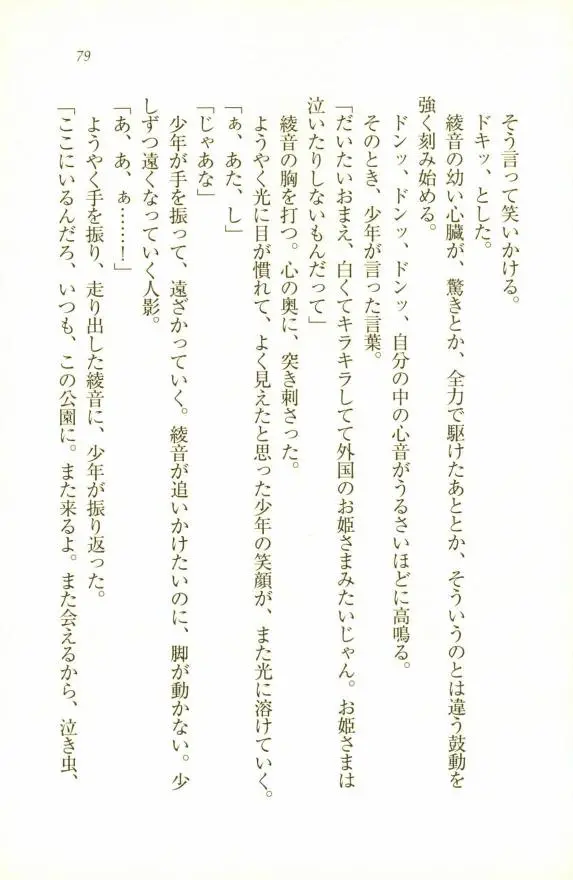 79
そう言って笑いかける。
ドキッ、とした。
綾音の幼い心臓が、驚きとか、全力で駆けたあととか、そういうのとは違う鼓動を
強く刻み始める。
ドンッ、ドンッ、ドンッ、自分の中の心音がうるさいほどに高鳴る。
そのとき、少年が言った言葉。
「だいたいおまえ、白くてキラキラしてて外国のお姫さまみたいじゃん。お姫さまは
泣いたりしないもんだって」
綾音の胸を打つ。心の奥に、突き刺さった。
ようやく光に目が慣れて、よく見えたと思った少年の笑顔が、また光に溶けていく。
「ぁ、あた、し」
「じゃあな」
少年が手を振って、遠ざかっていく。綾音が追いかけたいのに、脚が動かない。少
しずつ遠くなっていく人影。
「あ、あ、ぁ……！」
ようやく手を振り、走り出した綾音に、少年が振り返った。
「ここにいるんだろ、いつも、この公園に。また来るよ。また会えるから、泣き虫、